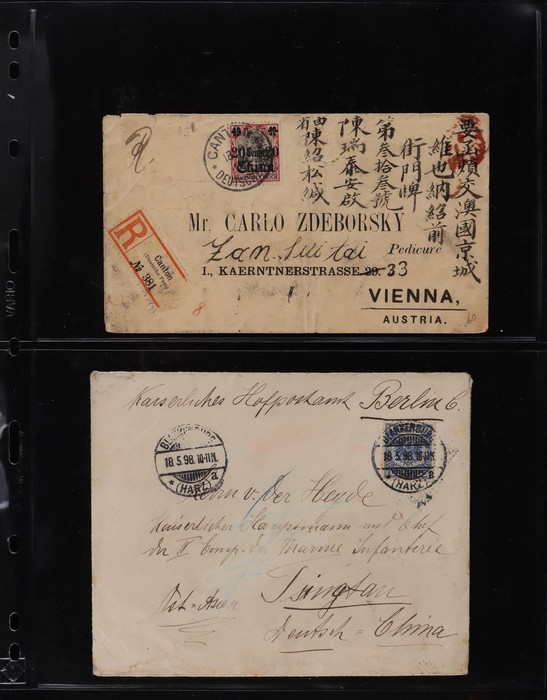 要函煩交澳國京城
維也納紹前
街門牌
第叁拾叁號
陳瑞泰安啟
由陳紹松緘
CANTON
DEUTSCHE
20 20
China
R
Canton
(Deutsche Post)
№ 381
Mr. CARLO ZDEBORSKÝ
Zan Sui tai Pedicure
I., KAERNTNERSTRASSE 29. 33
VIENNA,
AUSTRIA.
VARIO
Kaiserliches Hofpostamt Berlin C.
BLANKENBURG
18.5.98.10-11.N.
(HARZ) a
BLANKENBURG
18.5.98.10-11.N.
(HARZ) a
Herrn v. der Heyde
Kaiserlicher Hauptmann und Chef
der II Comp. der Marine Infanterie
Ost=Asien Tsingtau
Deutsch=China